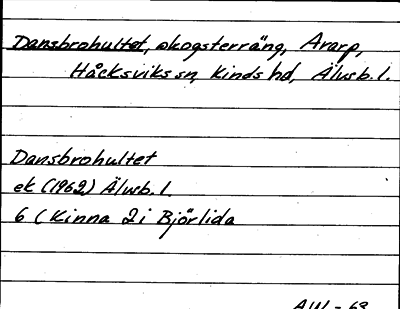 Dansbrohultet, skogsterräng, Ararp,
Håcksviks sn, Kinds hd, Älvsb. l.
Dansbrohultet
ek (1962) Älvsb. l.
6 ( Kinna 2 i Björlida